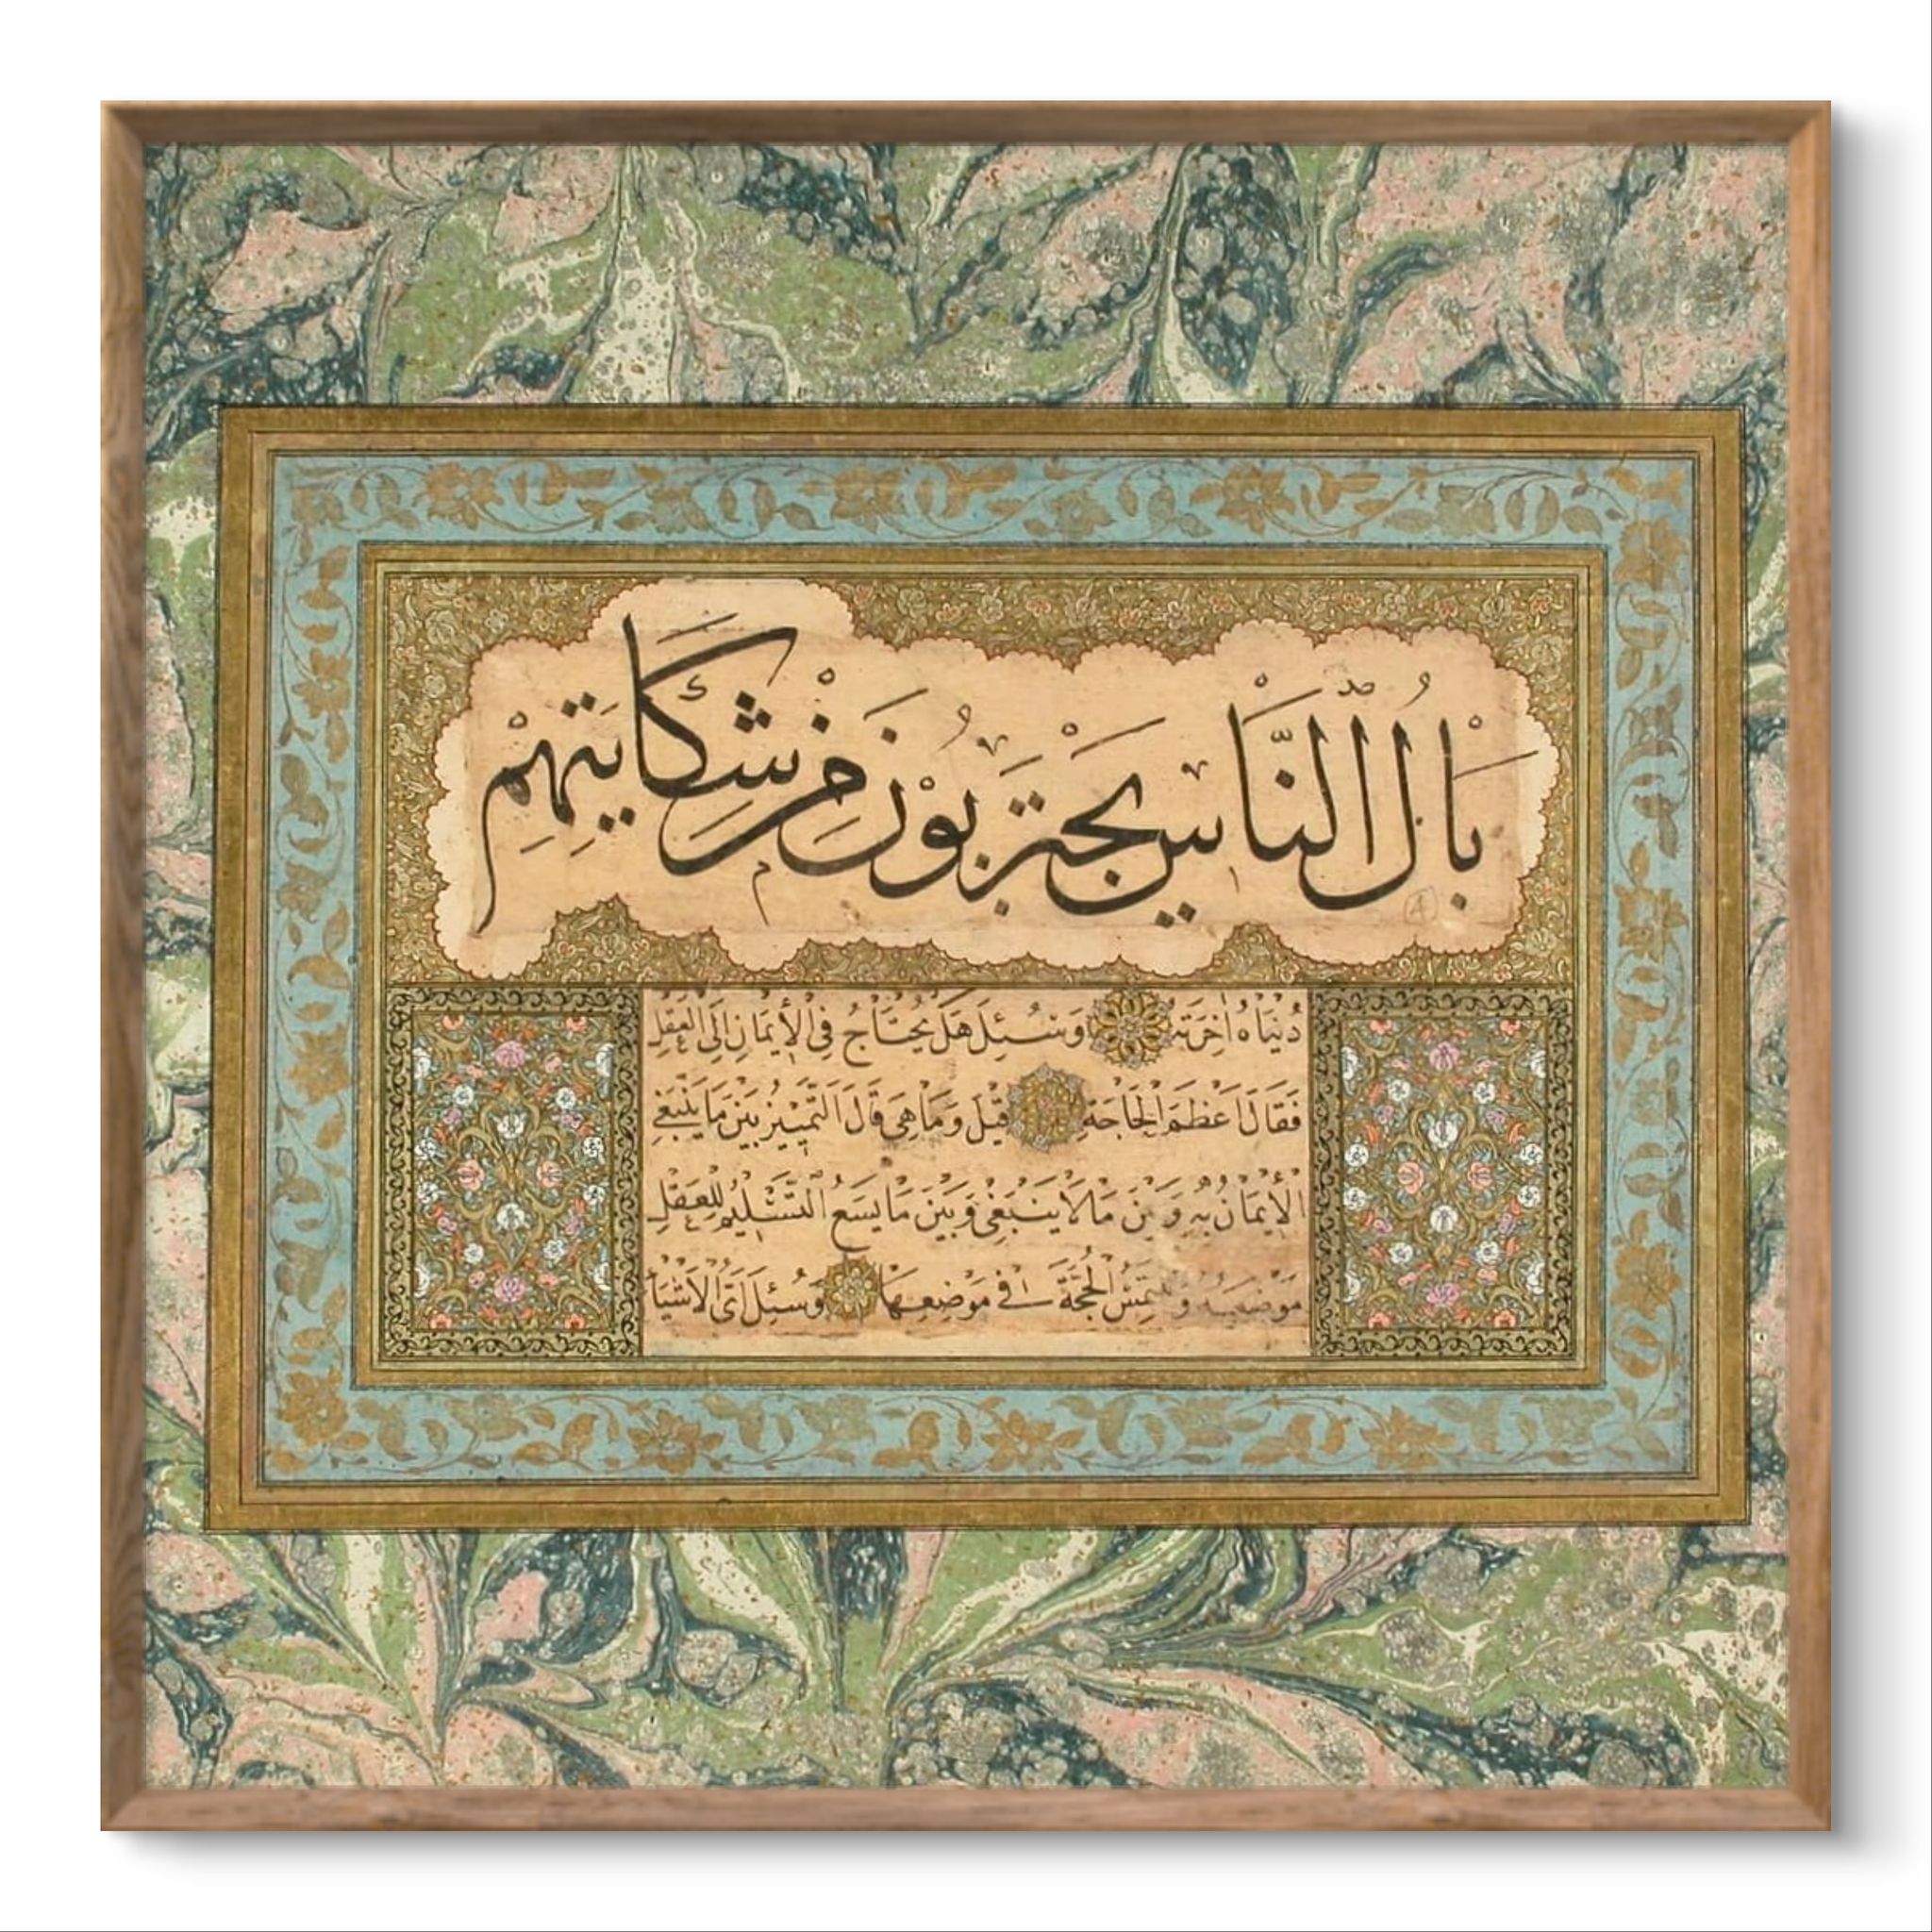 بَالُ النَّاسِ يَجْتَرِبُونَ مِنْ شِكَايَتِهِمْ
دُنْيَاهُ آخِرَتَهُ وَسُئِلَ هَلْ يُحْتَاجُ فِي الْإِيمَانِ إِلَى الْعَقْلِ
فَقَالَ اَعْظَمَ الْحَاجَةِ قِيلَ وَمَا هِيَ قَالَ اَلتَّمْيِيزُ بَيْنَ مَا يَنْبَغِي
الْإِيمَانُ بِهِ وَبَيْنَ مَا لَا يَنْبَغِي وَبَيْنَ مَا يَسَعُ التَّسْلِيمُ لِلْعَقْلِ
مَوْضِعِيهِ وَ الْحُجَّةَ فِي مَوْضِعِهَا وَسُئِلَ اَيُّ الْاَشْيَا